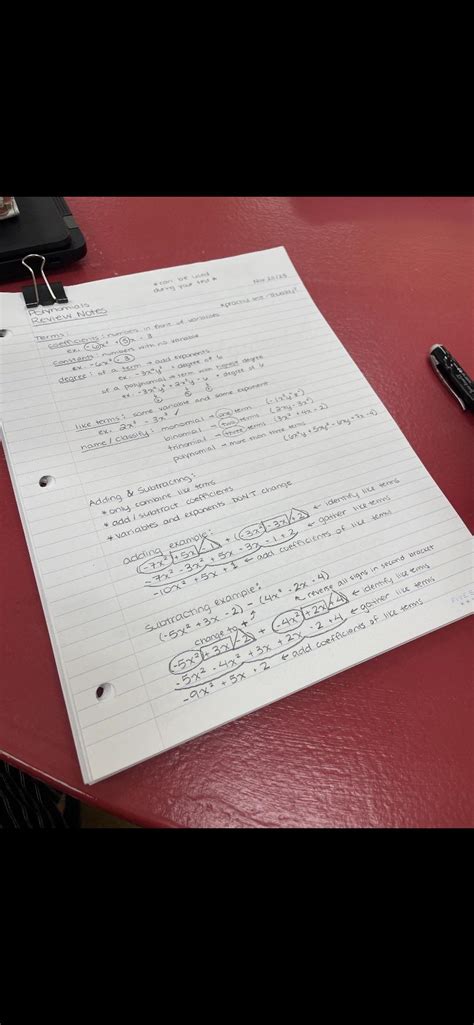 * can be used
during your test *
Nov
Polynomials
Review Notes
* practice test
Terms:
coefficients: numbers in front of variables
ex. -6x² + 5x - 3
constants: numbers with no variable
ex. -6x² - 3
degree: of a term → add exponents
ex. = degree of 6
of a polynomial → term with highest degree
ex. = degree of 6
like terms: same variable and same exponent
ex. 2x² 3x² ✓
name/classify: monomial → one term
binomial → two terms
trinomial → three terms (3x² + 4x - 2)
polynomial → more than three terms
Adding & Subtracting:
* only combine like terms
* add/subtract coefficients
* variables and exponents DON'T change
adding example:
(-7x² + 5x - 1) + (-3x² - 3x + 2) ← identify like terms
-7x² - 3x² + 5x - 3x - 1 + 2 ← gather like terms
-10x² + 5x + 1 ← add coefficients of like terms
Subtracting example:
(-5x² + 3x - 2) - (4x² - 2x - 4)
change to + reverse all signs in second bracket
-5x² + 3x - 2 + -4x² + 2x + 4 ← identify like terms
-5x² - 4x² + 3x + 2x - 2 + 4 ← gather like terms
-9x² + 5x + 2 ← add coefficients of like terms